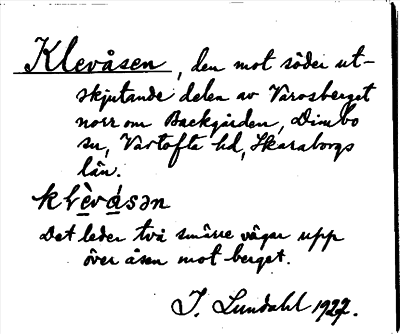 Klevåsen, den mot söder ut-
skjutande delen av Varosberget
norr om Backgården, Dimbo
sn, Vartofta hd, Skaraborgs
län.
klèvǻsən
Det leder två smärre vägar upp
över åsen mot berget.
I. Lundahl 1927.